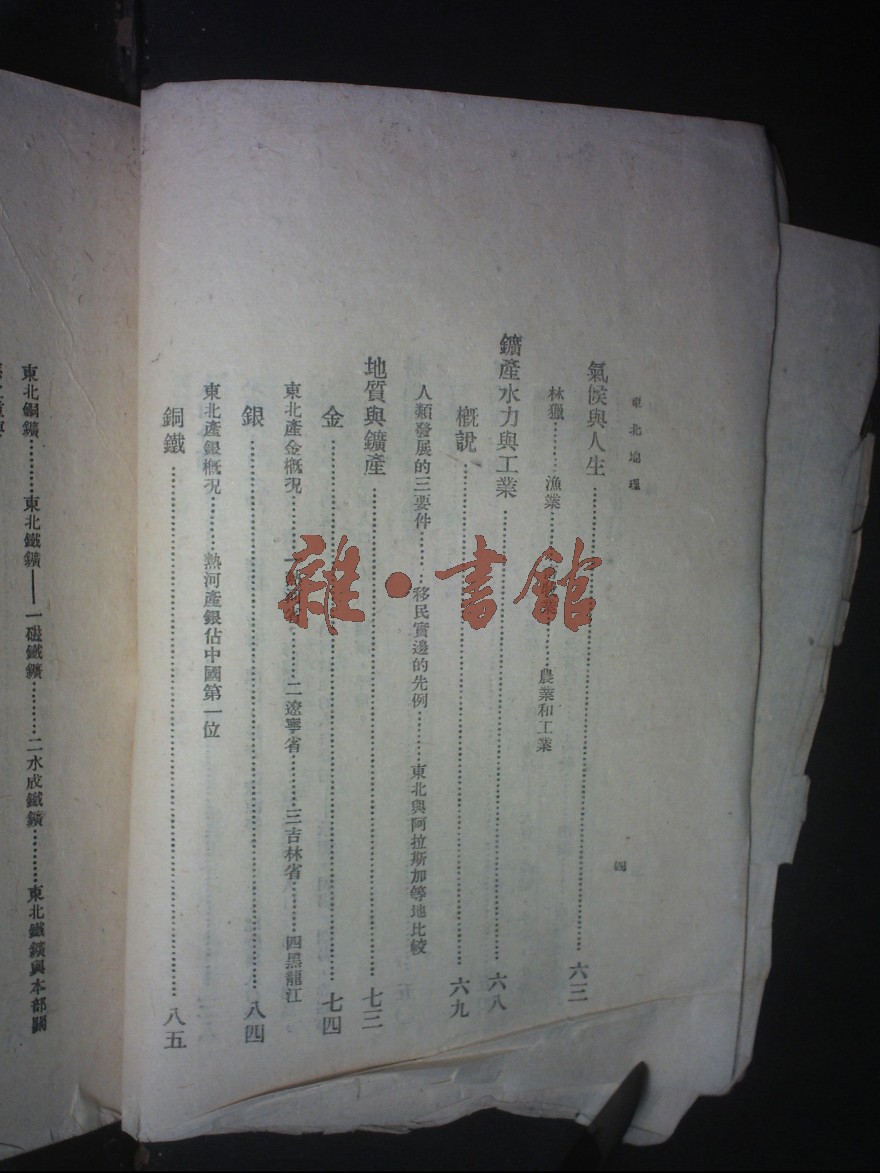 東北地理
四
氣候與人生……六三
林獵……漁業……農業和工業
鑛產水力與工業……六八
概說……六九
人類發展的三要件……移民實邊的先例……東北與阿拉斯加等地比較
地質與鑛產……七三
金……七四
東北產金概況……一……二遼寧省……三吉林省……四黑龍江
銀……八四
東北產銀概況……熱河產銀佔中國第一位
銅鐵……八五
東北銅鑛……東北鐵鑛——一磁鐵鑛……二水成鐵鑛……東北鐵鑛與本部關
雜·書館